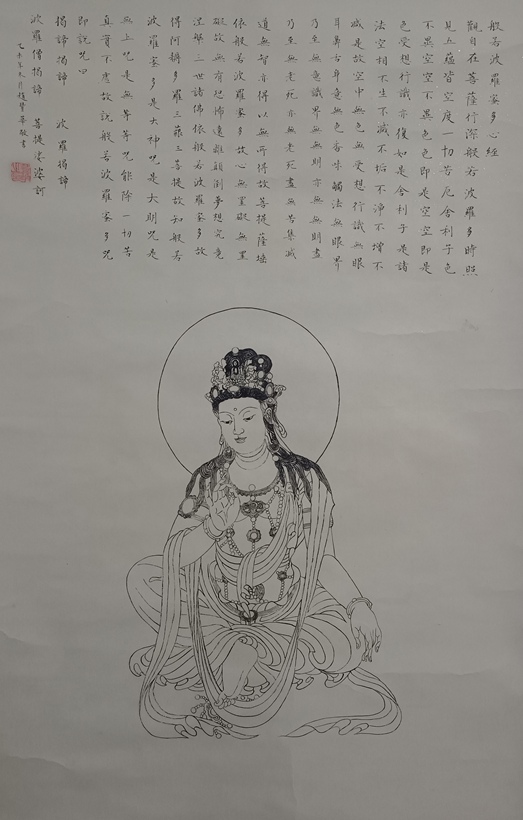 般若波羅蜜多心經
觀自在菩薩行深般若波羅多時照
見五蘊皆空度一切苦厄舍利子色
不異空空不異色色即是空空即是
色受想行識亦復如是舍利子是諸
法空相不生不滅不垢不淨不增不
減是故空中無色無受想行識無眼
耳鼻舌身意無色香味觸法無眼界
乃至無意識界無無明亦無無明盡
乃至無老死亦無老死盡無苦集滅
道無智亦得以無所得故菩提薩埵
依般若波羅蜜多故心無罣礙無罣
礙故無有恐怖遠離顛倒夢想究竟
涅槃三世諸佛依般若波羅蜜多故
得阿耨多羅三藐三菩提故知般若
波羅蜜多是大神咒是大明咒是
無上咒是無等等咒能除一切苦
真實不虛故說般若波羅蜜多咒
即說咒曰
揭諦揭諦 波羅揭諦
波羅僧揭諦 菩提娑婆訶
敬書